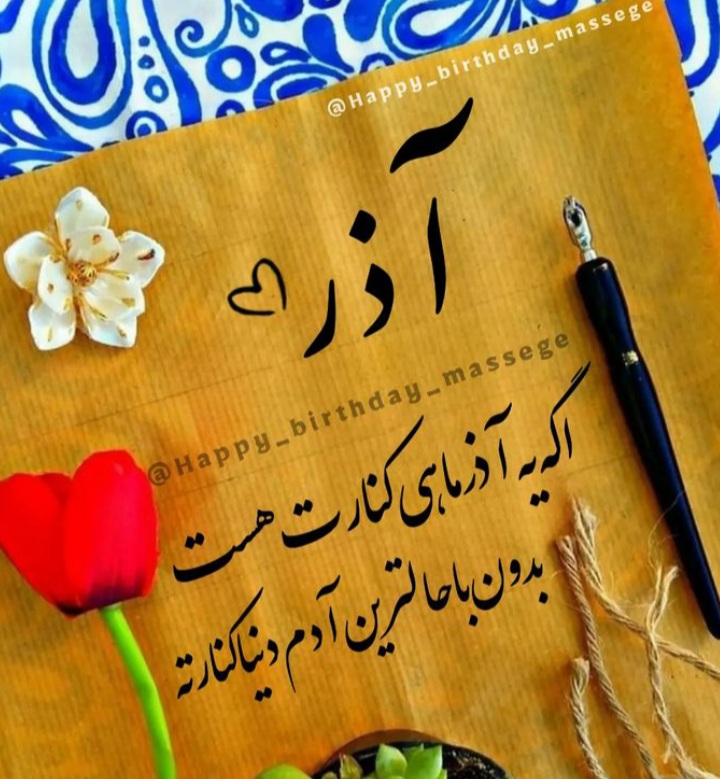 @Happy_birthday_massege
آذر
@Happy_birthday_massege
اگه یه آذر ماهی کنارت هست
بدون باحالترین آدم دنیا کنارته